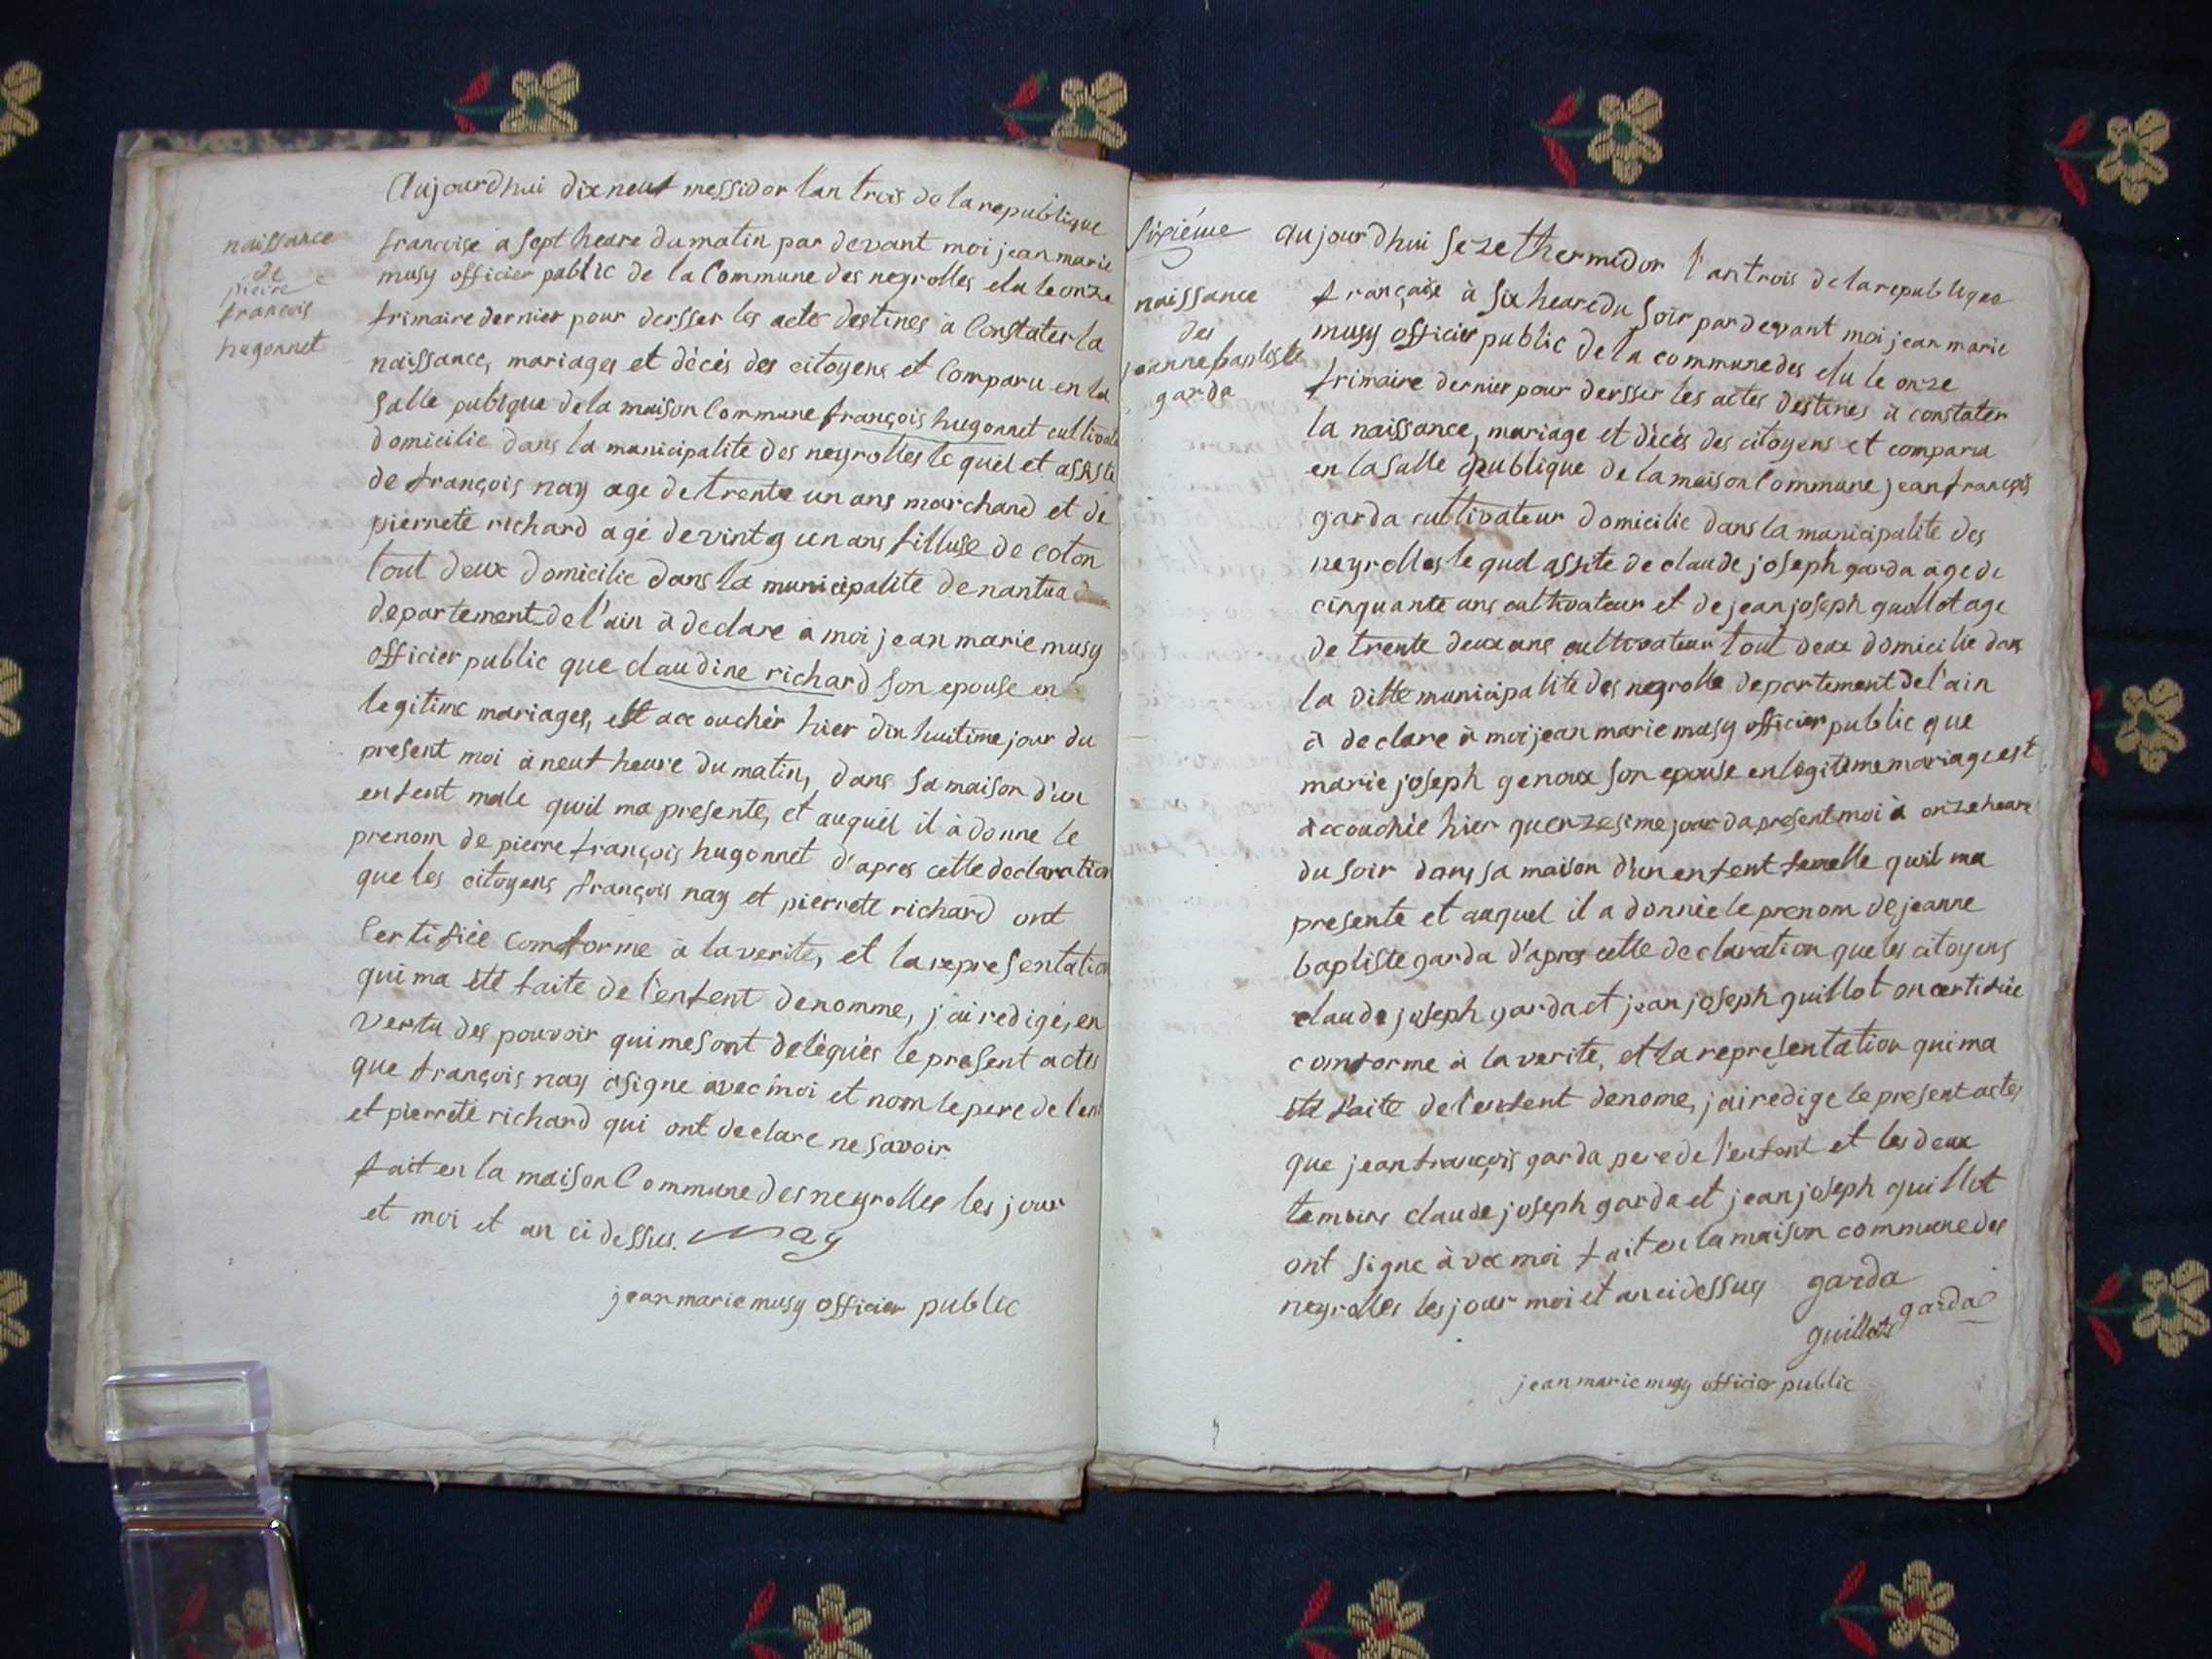 naissance
de
pierre
francois
hugonnet
Aujourdhui dixneuf messidor l'an trois de la republique
francoise a sept heure du matin par devant moi jean marie
musy officier public de la Commune des neyrolles elu le onze
frimaire dernier pour dersser les acte destines à Constater la
naissance, mariages et décés des citoyens et Comparu en la
Salle publque de la maison Commune françois hugonnet cultivate
domicilie dans la municipalite des neyrolles le quel et assiste
de françois nay age de trente un ans marchand et de
pierrete richard agé de vintg un ans filluse de coton
tout deux domicilie dans la municipalite de nantua
departement de l'ain à declare à moi jean marie musy
officier public que claudine richard son epouse en
legitime mariages, est accouchér hier dix huitime jour du
present moi à neuf heure du matin, dans sa maison d'un
enfent male quil ma presente, et auquel il à donne le
prenom de pierre françois hugonnet d'apres cette declaration
que les citoyens françois nay et pierrete richard ont
Certifiée comforme à la verite, et la representation
qui ma été faite de l'enfent denomme, j'ai redigé, en
Vertu des pouvoir qui me sont delégués le present actes
que françois nay a signe avec moi et nom le pere de l'en
et pierrete richard qui ont declare ne savoir.
fait en la maison Commune des neyrolles les jour
et moi et an ci dessus. Nay
jean marie musy officier public
Sixiéme
naissance
des
jeanne baptiste
garda
aujourdhui seze thermidor l'an trois de la republique
française à six heare du soir par devant moi jean marie
musy officier public de la commune des elu le onze
frimaire dernier pour dersser les actes destines à constater
la naissance, mariage et décés des citoyens et comparu
en la salle publique de la maison Commune jean françois
garda cultivateur domicilie dans la municipalite des
neyrolles le quel assite de claude joseph garda age de
cinquante ans cultivateur et de jean joseph guillot age
de trente deux ans cultivateur tout deux domicilie dans
la ditte municipalite des negrolle departement de l'ain
à declare à moi jean marie musy officier public que
marie joseph genoux son epouse en legitime mariage est
accouchée hier quenzesime jour du present moi à onze heare
du soir dans sa maison d'un enfent femelle quil ma
presente et auquel il a donnée le prenom de jeanne
baptiste garda d'apres cette declaration que les citoyens
claude joseph garda et jean joseph guillot on certifiée
comforme à la verite, et la representation qui ma
été faite de l'enfent denome, j'ai redige le present actes
que jean françois garda pere de l'enfent et les deux
temoins claude joseph garda et jean joseph guillot
ont signe àvec moi fait en la maison commune des
neyrolles les jour moi et an ci dessus garda
guillot garda
jean marie musy officier public